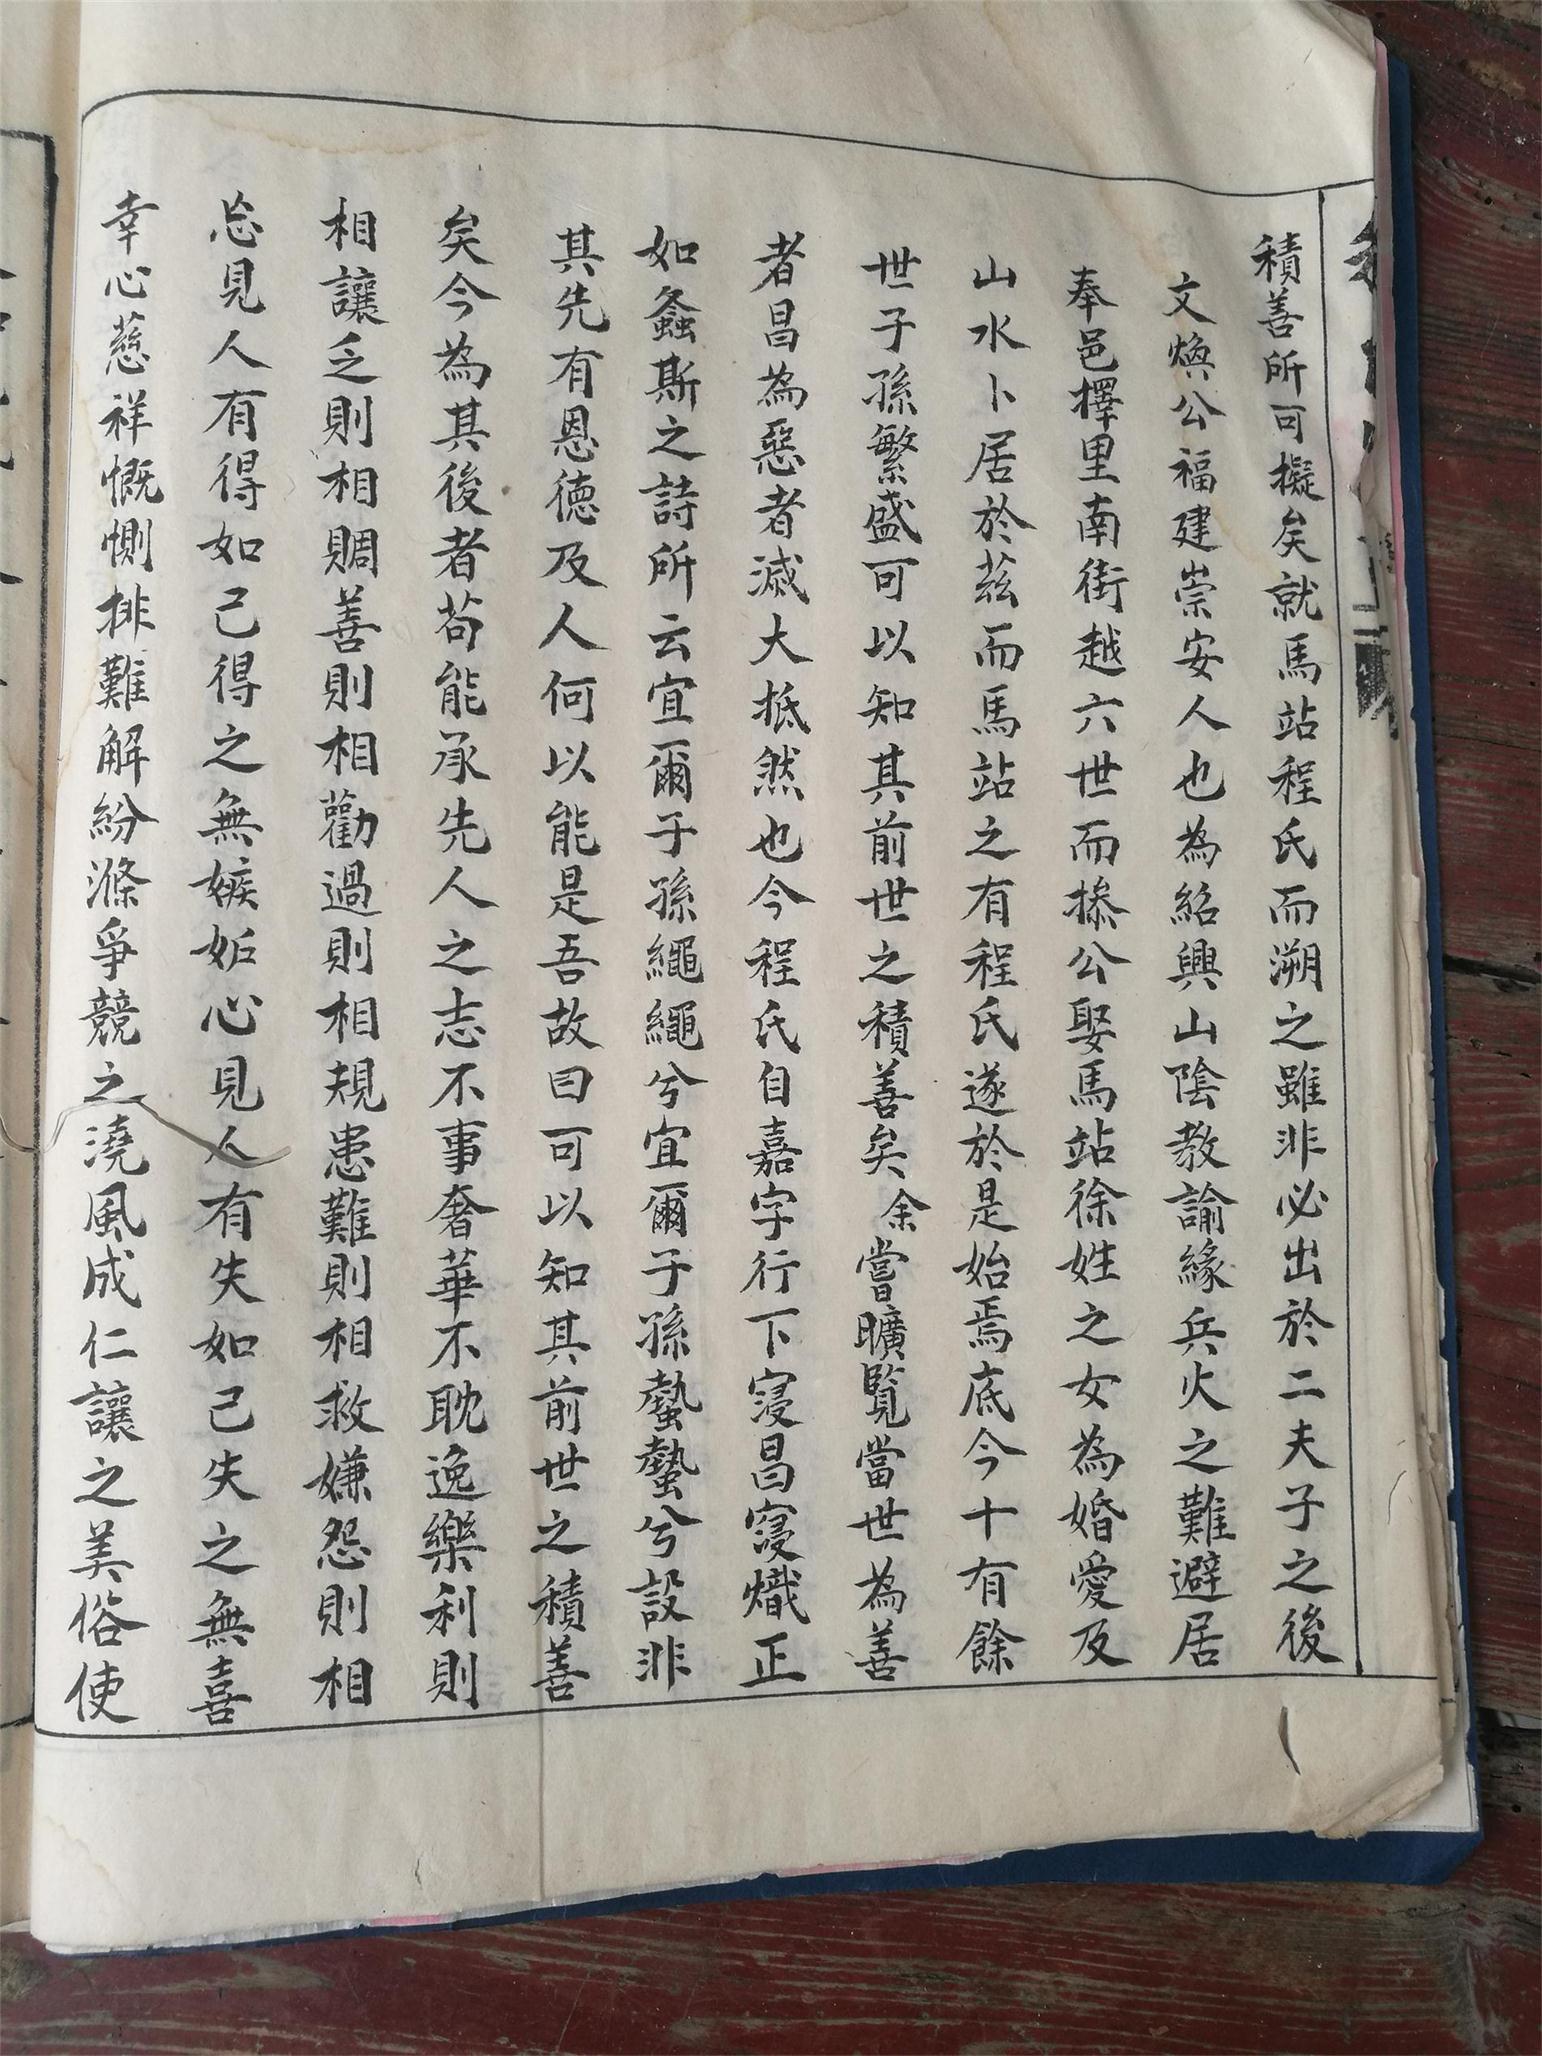 積善所可擬矣就馬站程氏而溯之雖非必出於二夫子之後
文煥公福建崇安人也為紹興山陰教諭緣兵火之難避居
奉邑檡里南街越六世而搽公娶馬站徐姓之女為婚愛及
山水卜居於茲而馬站之有程氏遂於是始焉底今十有餘
世子孫繁盛可以知其前世之積善矣余嘗曠覽當世為善
者昌為惡者滅大抵然也今程氏自嘉字行下寖昌寖熾正
如螽斯之詩所云宜爾子孫繩繩兮宜爾子孫蟄蟄兮設非
其先有恩德及人何以能是吾故曰可以知其前世之積善
矣今為其後者苟能承先人之志不事奢華不耽逸樂利則
相讓乏則相賙善則相勸過則相規患難則相救嫌怨則相
忘見人有得如己得之無嫉妬心見人有失如己失之無喜
幸心慈祥慨惻排難解紛滌爭競之澆風成仁讓之美俗使